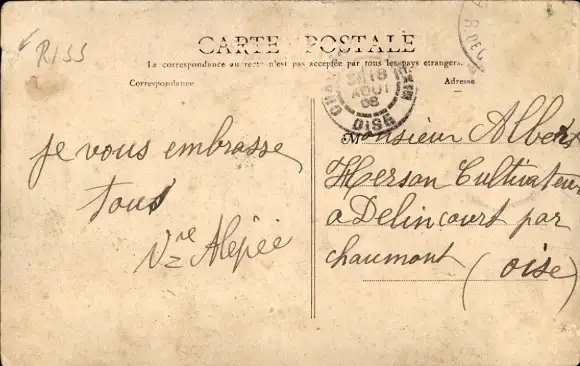 R155
CARTE POSTALE
La correspondance au recto n'est pas acceptée par tous les pays étrangers.
Correspondance
Adresse
8 DEC
18
AOUT
06
OISE
je vous embrasse
tous
Vve
Monsieur Albert
Herson Cultivateur
a Delincourt par
chaumont (oise)